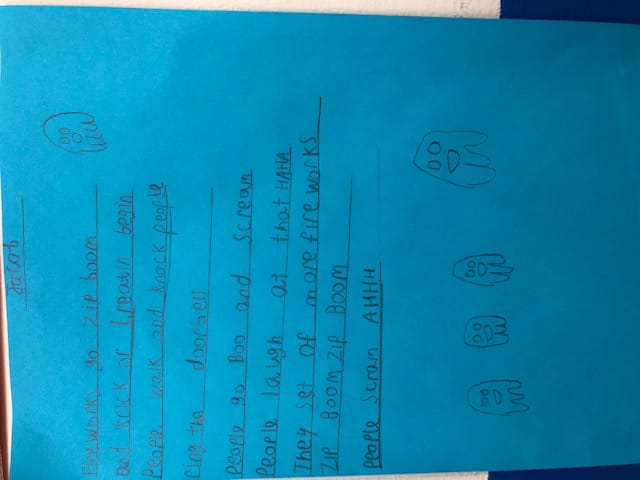 Jacob
Fireworks go zip boom
and trick or treatin begin
People walk and knock people
ring the doorbell
people go Boo and scream
People laugh at that HAHA
They set of more fire works
ZIP BOOM ZIP BOOM
people scram AHHH